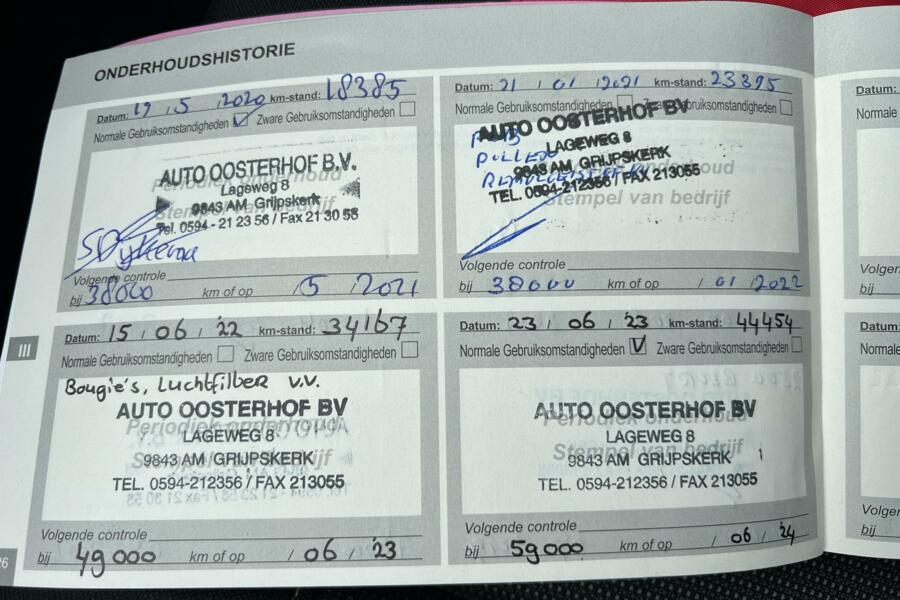 ONDERHOUDSHISTORIE
Datum: 19 / 5 / 2020 km-stand: 18385
Normale Gebruiksomstandigheden Zware Gebruiksomstandigheden
AUTO OOSTERHOF B.V.
Periodiek onderhoud
Lageweg 8
Stempel van bedrijf
9843 AM Grijpskerk
Tel. 0594 - 21 23 56 / Fax 21 30 55
Volgende controle
bij 38000 km of op / 5 / 2021
Datum: 21 / 01 / 2021 km-stand: 23395
Normale Gebruiksomstandigheden Zware Gebruiksomstandigheden
AUTO OOSTERHOF BV
LAGEWEG 8
POLLEN
9843 AM GRIJPSKERK
TEL. 0594-212356 / FAX 213055
Stempel van bedrijf
Volgende controle
bij 38000 km of op / 01 / 2022
III
Datum: 15 / 06 / '22 km-stand: 34167
Normale Gebruiksomstandigheden Zware Gebruiksomstandigheden
Bougie's, Luchtfilber v.v.
AUTO OOSTERHOF BV
Periodiek onderhoud
LAGEWEG 8
Stempel van bedrijf
9843 AM GRIJPSKERK
TEL. 0594-212356 / FAX 213055
Volgende controle
bij 49000 km of op / 06 / '23
Datum: 23 / 06 / '23 km-stand: 44454
Normale Gebruiksomstandigheden Zware Gebruiksomstandigheden
AUTO OOSTERHOF BV
Periodiek onderhoud
LAGEWEG 8
Stempel van bedrijf
9843 AM GRIJPSKERK
TEL. 0594-212356 / FAX 213055
Volgende controle
bij 59000 km of op / 06 / '24
Datum:
Normale
bij
Datum:
Normale
bij